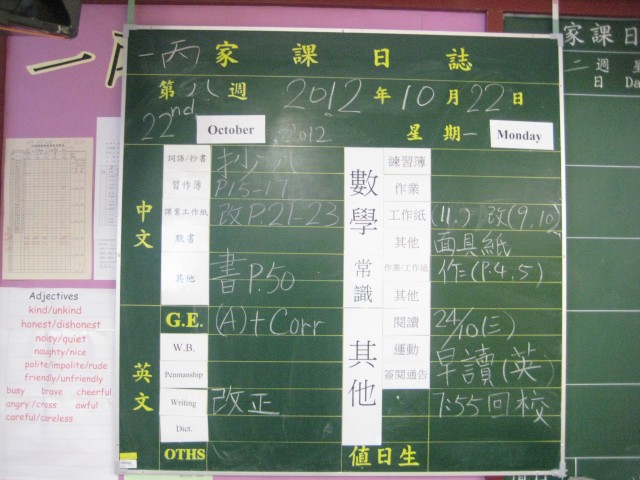 一丙 家課日誌
第八週 2012年10月22日
22nd October 2012 星期一 Monday
中文
詞語/抄書 抄八
習作簿 P.15-17
課業工作紙 改P.21-23
默書
其他 書P.50
英文
G.E. (A)+Corr
W.B.
Penmanship
Writing 改正
Dict.
OTHS
數學
練習簿
作業
工作紙 (11.) 改(9,10)
其他 面具紙
常識
作業/工作紙 作:(P.4,5)
其他
其他
閱讀 24/10(三)
運動 早讀(英)
簽閱通告 7:55回校
值日生
一丙
Adjectives
kind/unkind
honest/dishonest
noisy/quiet
naughty/nice
polite/impolite/rude
friendly/unfriendly
busy brave cheerful
angry/cross awful
careful/careless
家課日
二 週
日 Da